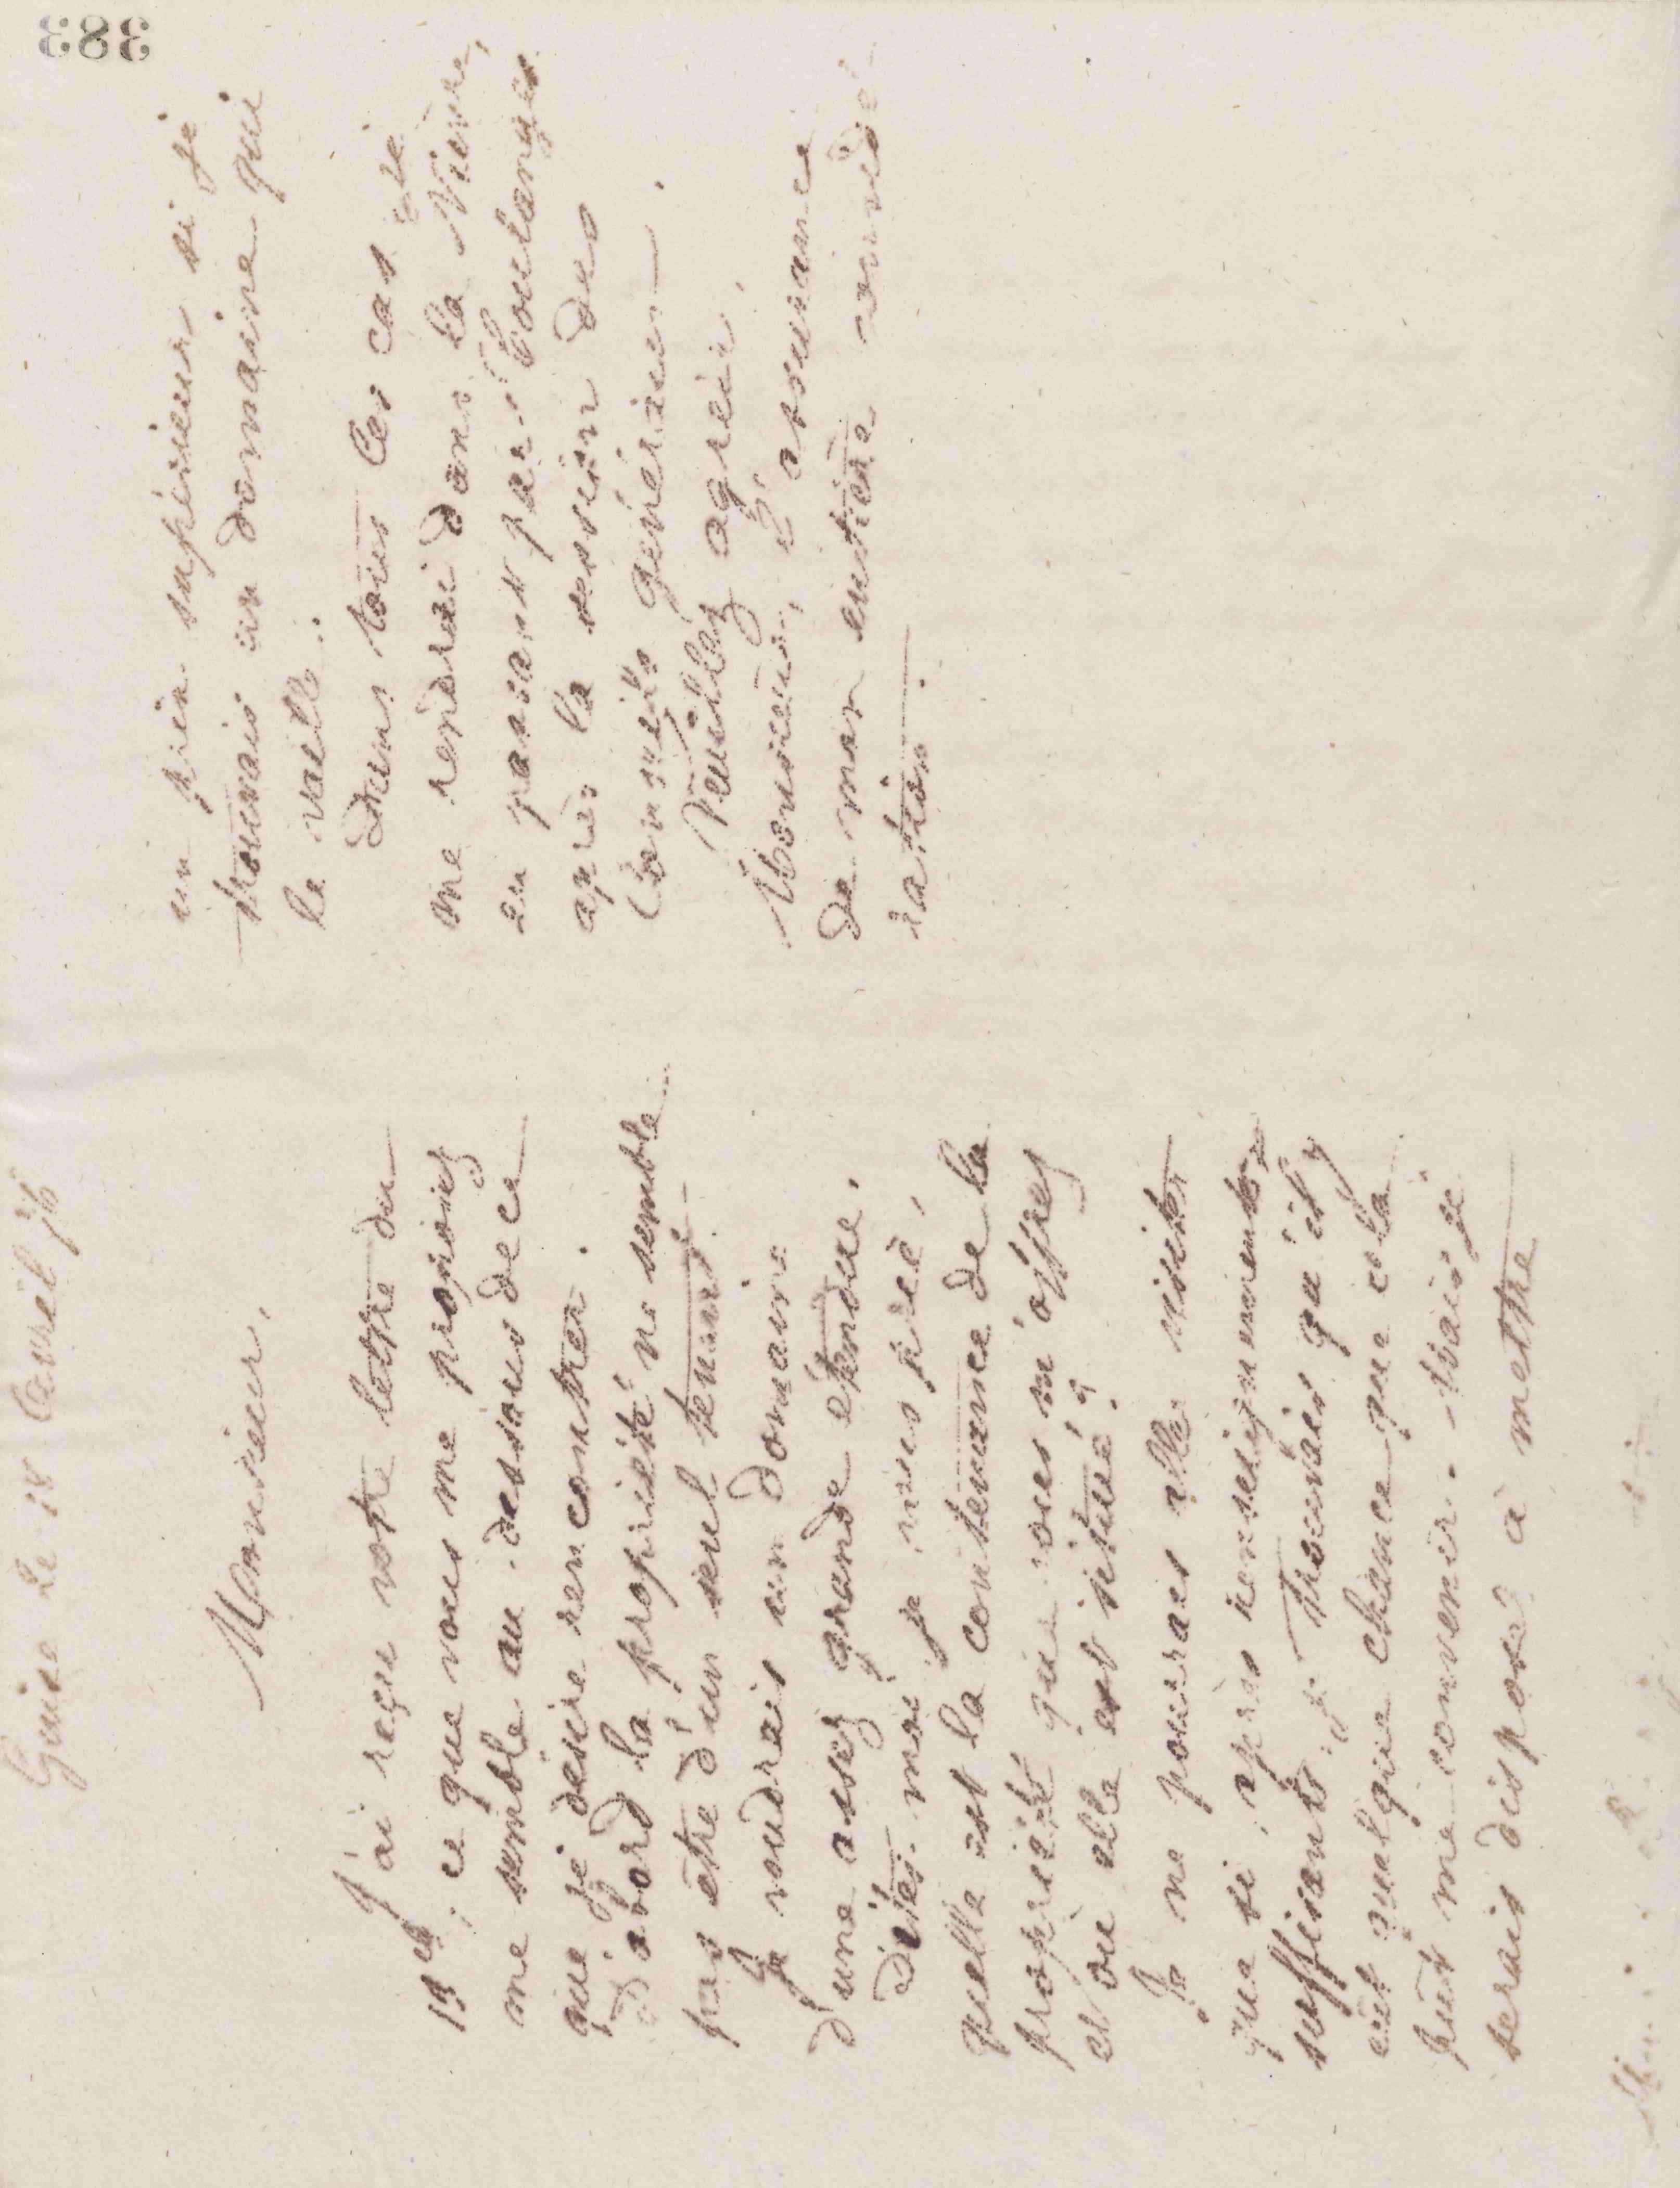 383
Guise le 18 Avril 76
Monsieur,
J'ai reçu votre lettre du
15 ct; ce que vous me proposez
me semble au-dessous de ce
que je désire rencontrer.
D'abord la propriété ne semble
pas être d'un seul tenant.
Je voudrais un domaine
d'une assez grande étendue.
Dites-moi je vous prie,
quelle est la contenance de la
propriété que vous m'offrez
et où elle est située?
Je ne pourrais aller visiter
que si, après renseignements
suffisants, je trouvais qu'il y
eût quelque chance que cela
pût me convenir. Mais je
serais disposé à mettre
un prix supérieur si je
trouvais un domaine qui
le vaille.
Dans tous les cas je
me rendrai dans la Nièvre,
en passant par Coulanges
après la session des
Conseils généraux.
Veuillez agréer,
Monsieur, l'assurance
de mon entière considé-
ration.